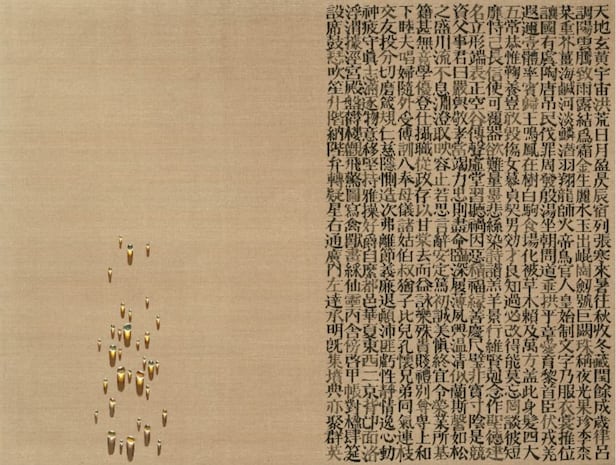 天地玄黃宇宙洪荒日月盈昃辰宿列張寒來暑往秋收冬藏閏餘成歲律呂
調陽雲騰致雨露結爲霜金生麗水玉出崑岡劍號巨闕珠稱夜光果珍李柰
菜重芥薑海鹹河淡鱗潛羽翔龍師火帝鳥官人皇始制文字乃服衣裳推位
讓國有虞陶唐弔民伐罪周發殷湯坐朝問道垂拱平章愛育黎首臣伏戎羌
遐邇壹體率賓歸王鳴鳳在樹白駒食場化被草木賴及萬方蓋此身髮四大
五常恭惟鞠養豈敢毁傷女慕貞男效才良知過必改得能莫忘罔談彼短
靡恃己長信使可覆器欲難量墨悲絲染詩讚羔羊景行維賢克念作聖德建
名立形端表正空谷傳聲虛堂習聽禍因惡積福緣善慶尺璧非寶寸陰是競
資父事君曰嚴與敬孝當竭力忠則盡命臨深履薄夙興溫凊似蘭斯馨如松
之盛川流不息淵澄取映容止若思言辭安定篤初誠美愼終宜令榮業所基
籍甚無竟學優登仕攝職從政存以甘棠去而益詠樂殊貴賤禮別尊卑上和
下睦夫唱婦隨外受傅訓入奉母儀諸姑伯叔猶子比兒孔懷兄弟同氣連枝
交友投分切磨箴規仁慈隱惻造次弗離節義廉退顚沛匪虧性靜情逸心動
神疲守眞志滿逐物意移堅持雅操好爵自縻都邑華夏東西二京背邙面洛
浮渭據涇宮殿盤鬱樓觀飛驚圖寫禽獸畫綵仙靈丙舍傍啓甲帳對楹肆筵
設席鼓瑟吹笙升階納陛弁轉疑星右通廣內左達承明旣集墳典亦聚群英